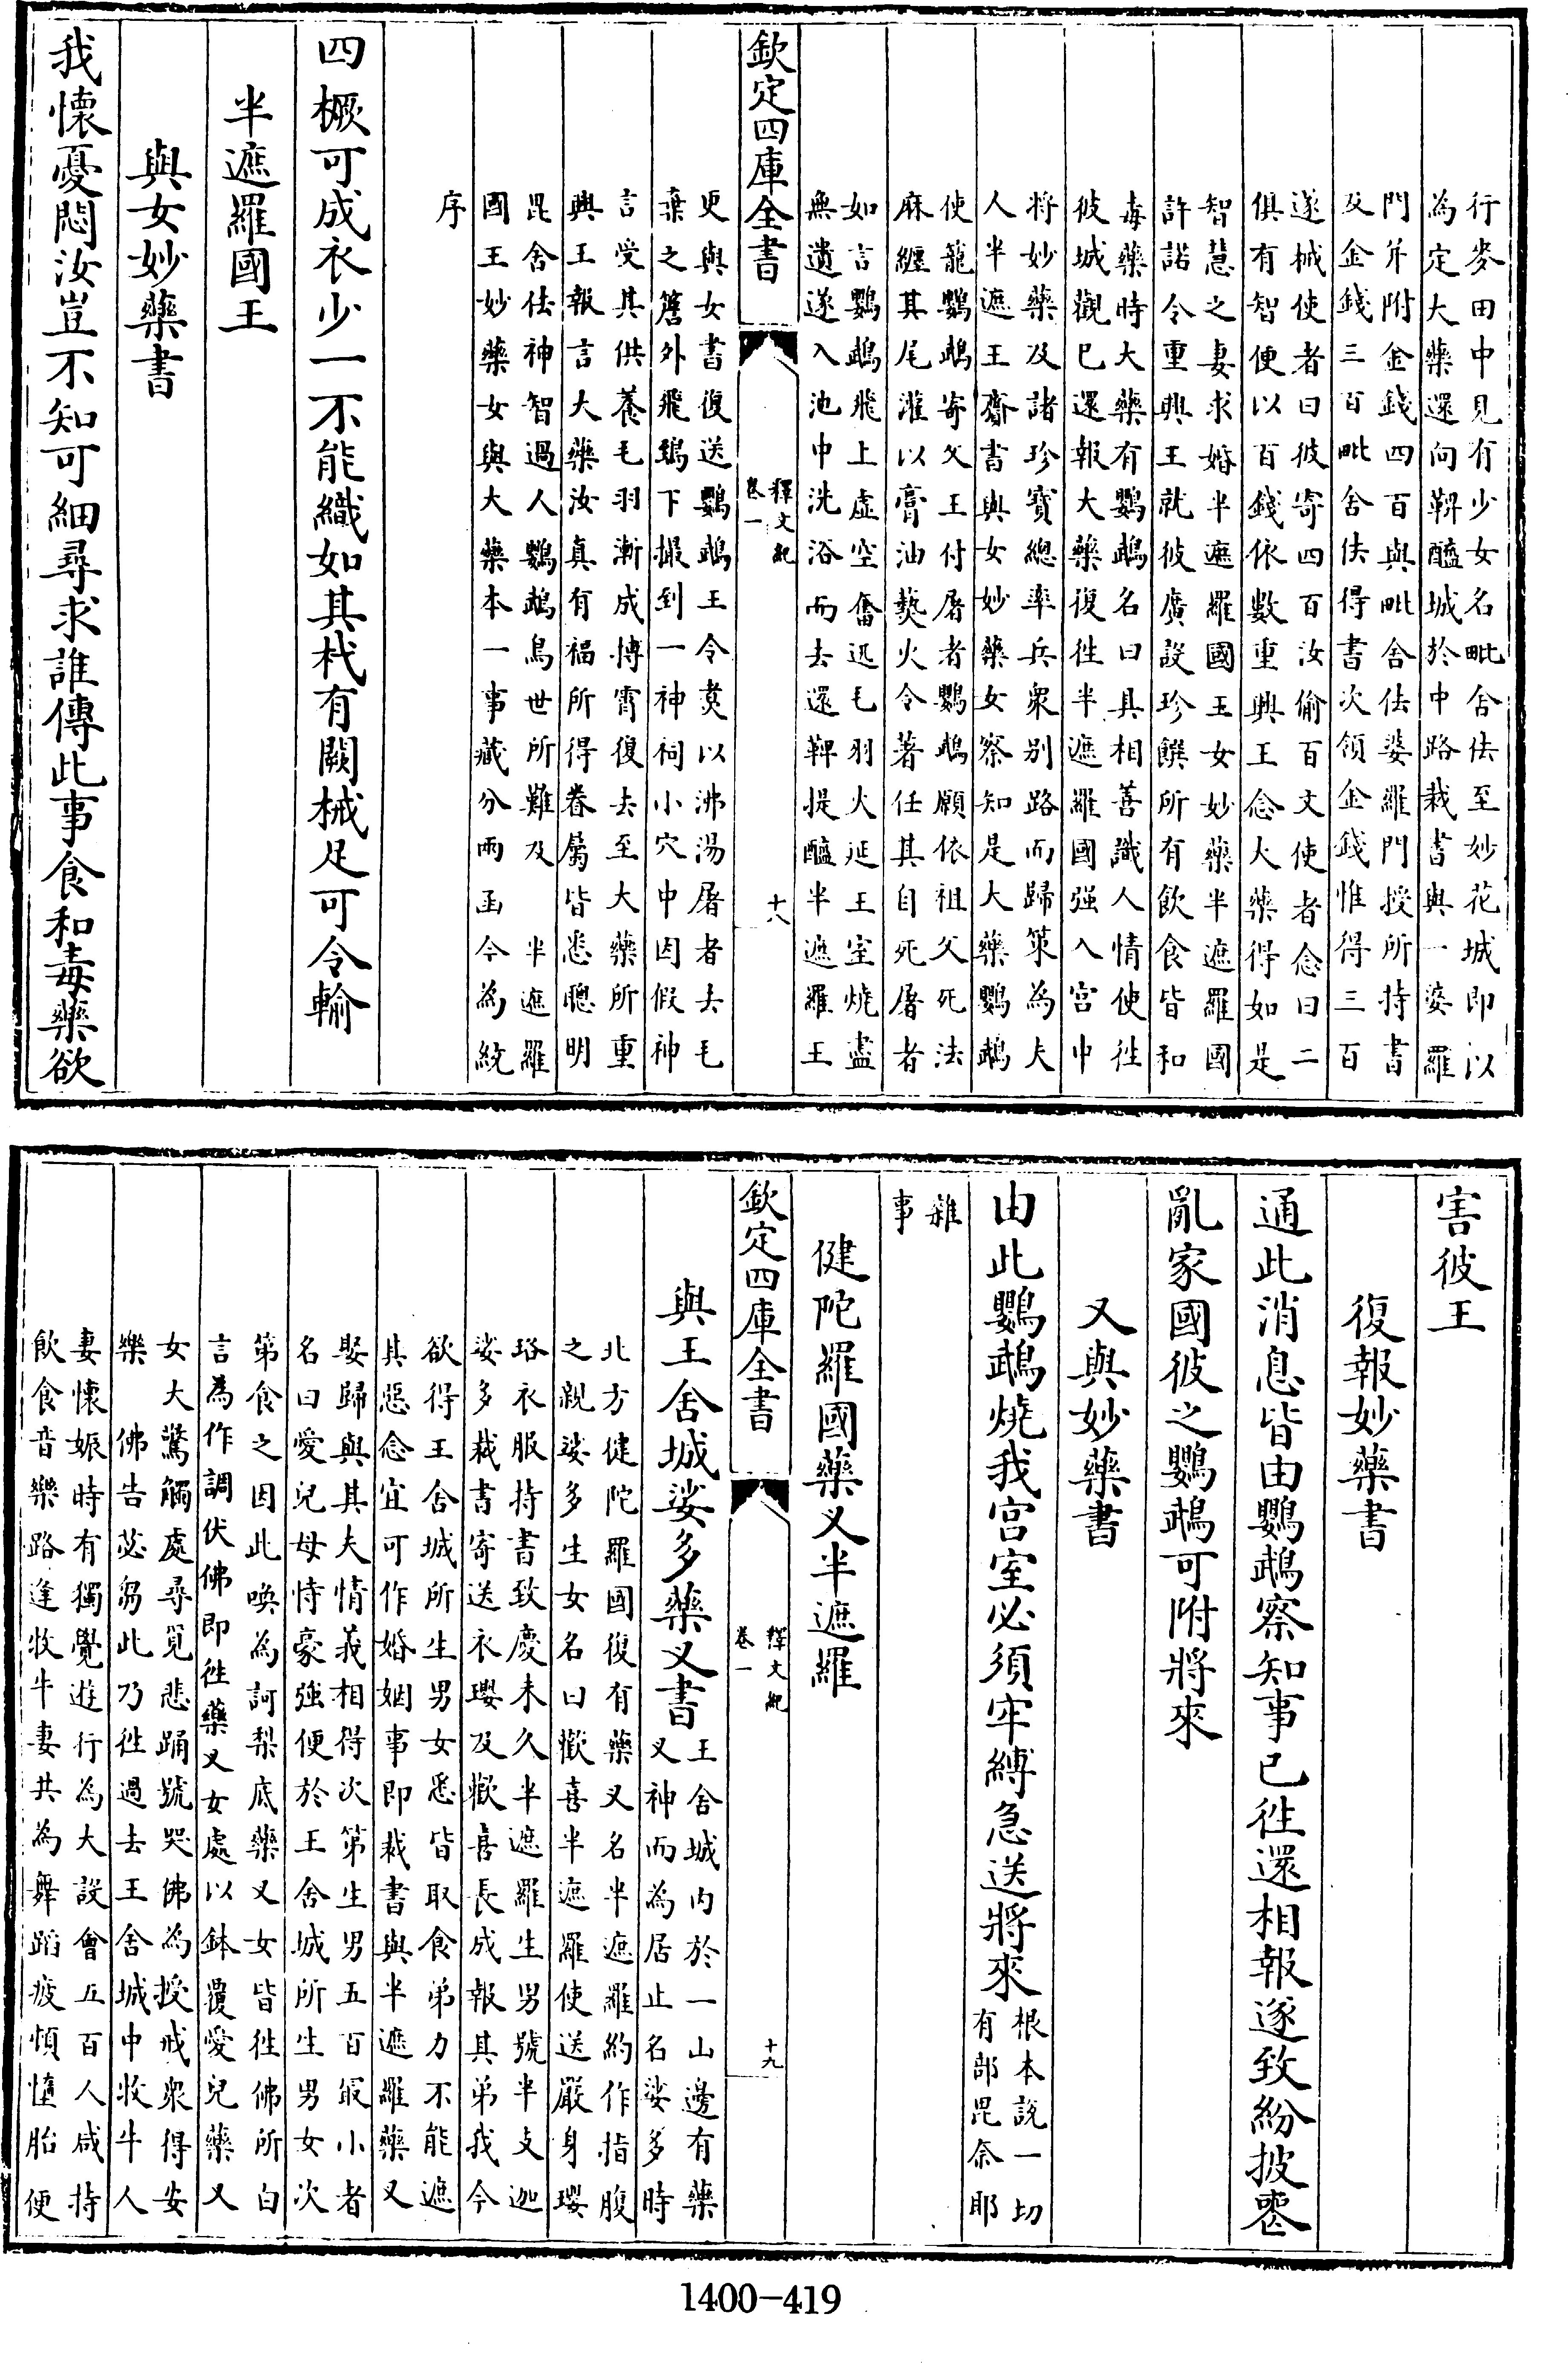 行麥田中見有少女名毗舍佉至妙花城即以
為定大藥還向鞞醯城於中路裁書與一婆羅
門并附金錢四百與毗舍佉婆羅門授所持書
及金錢三百毗舍佉得書次領金錢惟得三百
遂械使者曰彼寄四百汝偷百文使者念曰二
俱有智便以百錢依數重興王念大藥得如是
智慧之妻求婚半遮羅國王女妙藥半遮羅國
許諾令重興王就彼廣設珍饌所有飲食皆和
毒藥時大藥有鸚鵡名曰具相善識人情使往
彼城觀已還報大藥復往半遮羅國强入宮中
將妙藥及諸珍寶總率兵衆别路而歸策為夫
人半遮王齎書與女妙藥女察知是大藥鸚鵡
使籠鸚鵡寄父王付屠者鸚鵡願依祖父死法
麻纏其尾灌以膏油爇火令著任其自死屠者
如言鸚鵡飛上虛空奮迅毛羽火延王室燒盡
無遺遂入池中洗浴而去還鞞提醯半遮羅王
欽定四庫全書
釋文紀
卷一
十八
更與女書復送鸚鵡王令莫以沸湯屠者去毛
棄之簷外飛鵄下撮到一神祠小穴中因假神
言受其供養毛羽漸成博霄復去至大藥所重
興王報言大藥汝真有福所得眷屬皆悉聰明
毘舍佉神智過人鸚鵡鳥世所難及　半遮羅
國王妙藥女與大藥本一事藏分兩函今為統
序
四橛可成衣少一不能織如其杙有闕械足可令輸
半遮羅國王
與女妙藥書
我懷憂悶汝豈不知可細尋求誰傳此事食和毒藥欲
害彼王
復報妙藥書
通此消息皆由鸚鵡察知事已往還相報遂致紛披惑
亂家國彼之鸚鵡可附將來
又與妙藥書
由此鸚鵡燒我宮室必須牢縛急送將來根本說一切
有部毘奈耶
雜
事
健陀羅國藥叉半遮羅
欽定四庫全書
釋文紀
卷一
十九
與王舍城娑多藥叉書王舍城内於一山邊有藥
叉神而為居止名娑多時
北方健陀羅國復有藥叉名半遮羅約作指腹
之親娑多生女名曰歡喜半遮羅使送嚴身瓔
珞衣服持書致慶未久半遮羅生男號半支迦
娑多裁書寄送衣瓔及歡喜長成報其弟我今
欲得王舍城所生男女悉皆取食弟力不能遮
其惡念宜可作婚姻事即裁書與半遮羅藥叉
娶歸與其夫情義相得次第生男五百㝡小者
名曰愛兒母恃豪強便於王舍城所生男女次
第食之因此喚為訶梨底藥叉女皆往佛所白
言為作調伏佛即往藥叉女處以鉢覆愛兒藥叉
女大驚觸處尋覓悲踊號哭佛為授戒衆得安
樂　佛告苾芻此乃往過去王舍城中牧牛人
妻懷娠時有獨覺遊行為大設會五百人咸持
飲食音樂路逢牧牛妻共為舞蹈疲頓墮胎便
1400-419